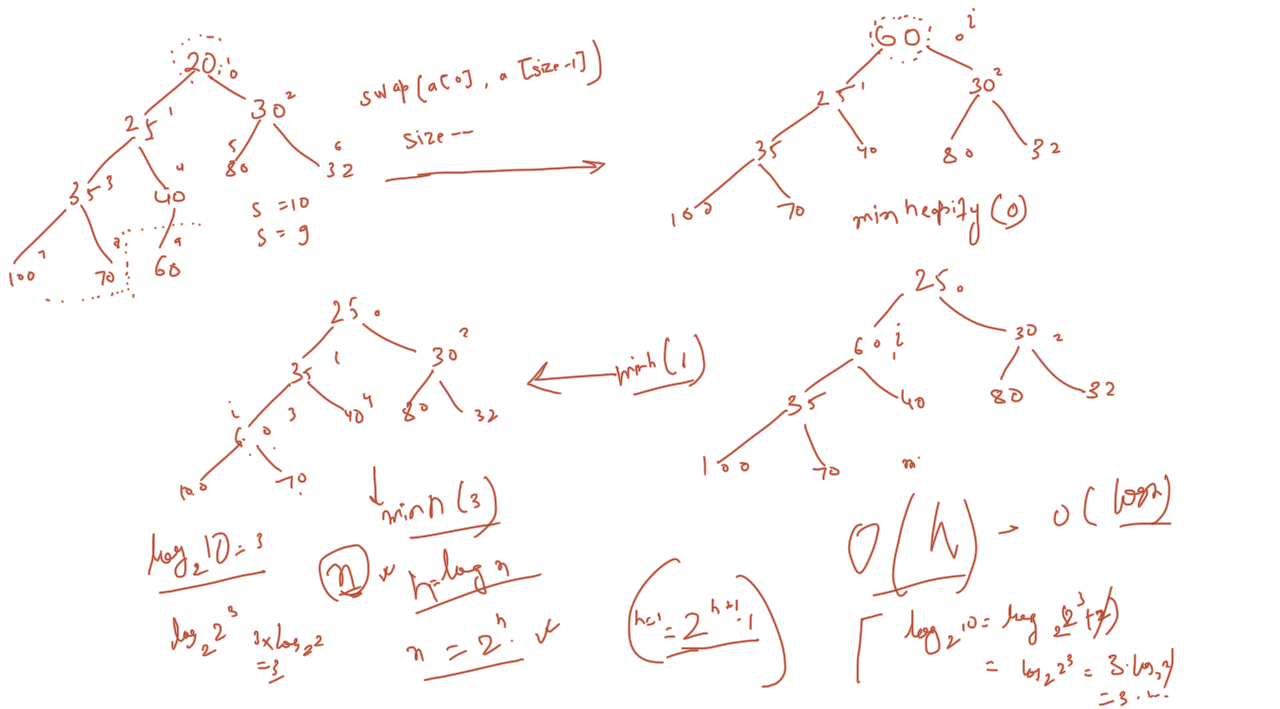 20 0
25 1
30 2
35 3
40 4
80 5
32 6
100 7
70 8
60 9
s = 10
s = 9
swap(a[0], a[size-1])
size--
60 0 i
25 1
30 2
35
40
80
32
100
70
minheapify(0)
25 0
60 i 1
30 2
35
40
80
32
100
70
minh(1)
25 0
35 1
30 2
i 60 3
40 4
80
32
100
70
minh(3)
log₂10 = 3
log₂2³
3×log₂2
=3
n
h=log n
n = 2^h
= 2^(h+1)-1
O(h) → O(logn)
log₂10 = log₂2³+2
= log₂2³ = 3·log₂2
=3